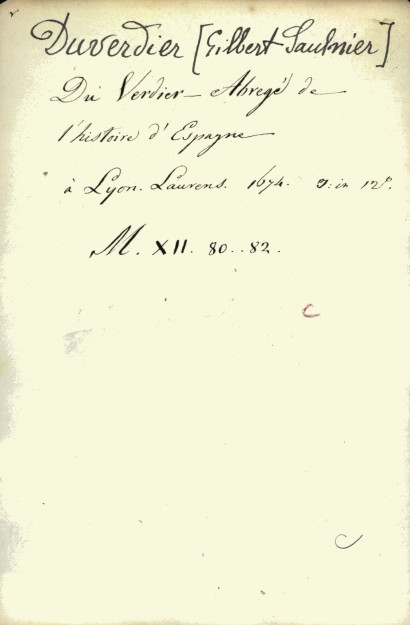 Duverdier [Gilbert Saulnier]
Du Verdier - Abregé de
l'histoire d'Espagne
à Lyon. Laurens. 1674. in 12°.
M. XII. 80..82.
C